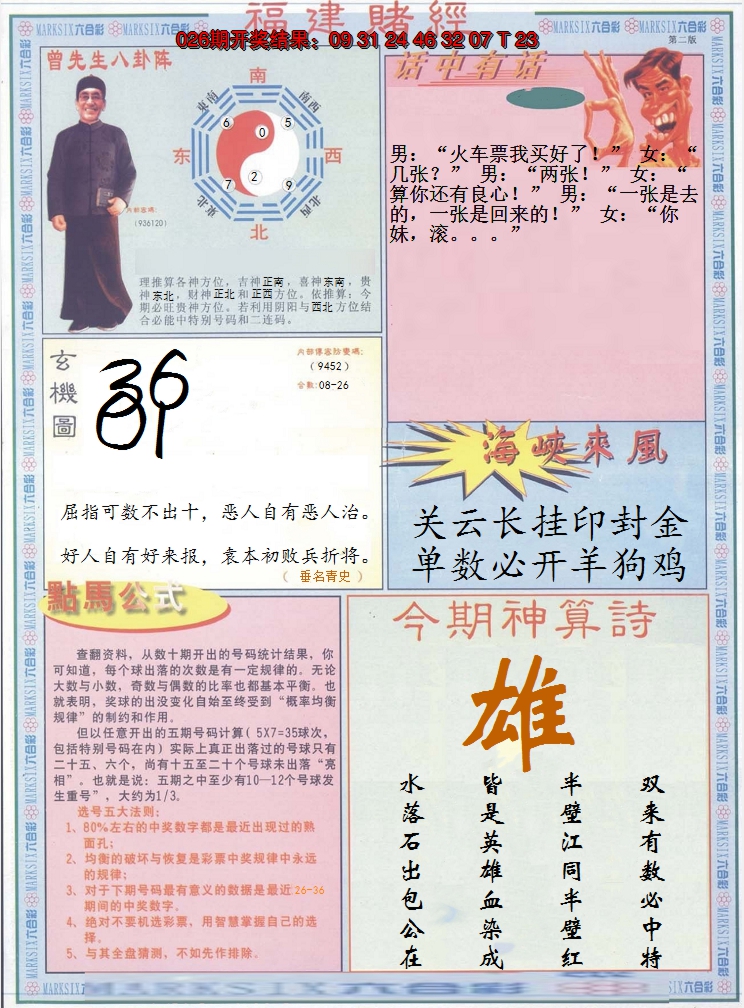 福建賭經
026期开奖结果：09 31 24 46 32 07 T 23
第二版
曾先生八卦阵
南
東南
南西
东
西
東北
北西
北
6
0
5
7
2
9
内部密碼：
（936120）
理推算各神方位，吉神正南，喜神东南，贵
神东北，财神正北和正西方位。依推算：今
期必旺贵神方位。若利用阴阳与西北方位结
合必能中特别号码和二连码。
话中有话
男：“火车票我买好了！” 女：“
几张？” 男：“两张！” 女：“
算你还有良心！” 男：“一张是去
的，一张是回来的！” 女：“你
妹，滚。。。”
玄機圖
内部傳密防變碼：
（9452）
合數：08-26
屈指可数不出十，恶人自有恶人治。
好人自有好来报，袁本初败兵折将。
（ 垂名青史 ）
海峽來風
关云长挂印封金
单数必开羊狗鸡
點馬公式
查翻资料，从数十期开出的号码统计结果，你
可知道，每个球出落的次数是有一定规律的。无论
大数与小数，奇数与偶数的比率也都基本平衡。也
就表明，奖球的出没变化自始至终受到“概率均衡
规律”的制约和作用。
但以任意开出的五期号码计算（5X7=35球次，
包括特别号码在内）实际上真正出落过的号球只有
二十五、六个，尚有十五至二十个号球未出落“亮
相”。也就是说：五期之中至少有10—12个号球发
生重号”，大约为1/3。
选号五大法则：
1、80%左右的中奖数字都是最近出现过的熟
面孔；
2、均衡的破坏与恢复是彩票中奖规律中永远
的规律；
3、对于下期号码最有意义的数据是最近26-36
期间的中奖数字。
4、绝对不要机选彩票，用智慧掌握自己的选
择。
5、与其全盘猜测，不如先作排除。
今期神算詩
雄
双来有数必中特
半壁江同半壁红
皆是英雄血染成
水落石出包公在
MARKSIX六合彩